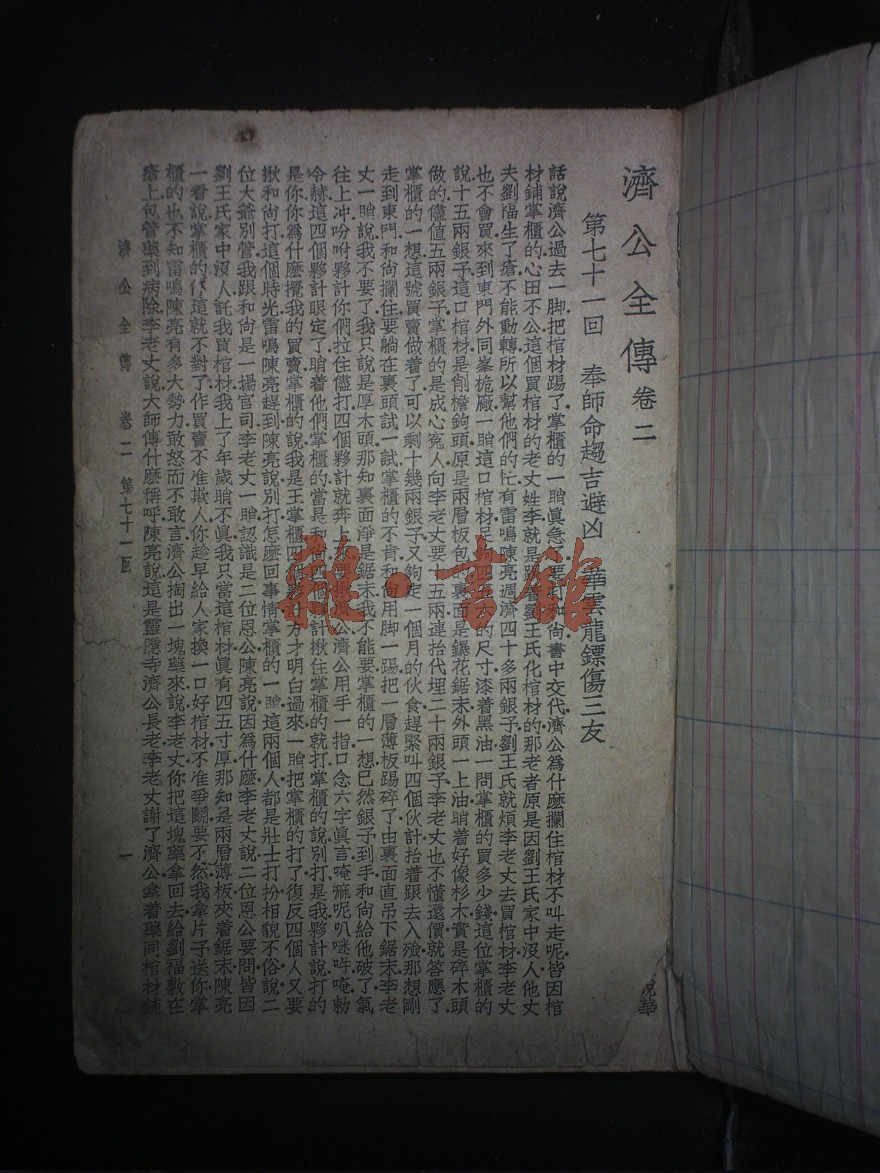 濟公全傳 卷二
第七十一回 奉師命趨吉避凶 華雲龍鏢傷三友
話說濟公過去一脚把棺材踢了掌櫃的一瞧眞急了要打和尙書中交代濟公爲什麽攔住棺材不叫走呢皆因棺
材鋪掌櫃的心田不公這個買棺材的老丈姓李就是跟着劉王氏化棺材的那老者原是因劉王氏家中沒人他丈
夫劉福生了瘡不能動轉所以幫他們的忙有雷鳴陳亮週濟四十多兩銀子劉王氏就煩李老丈去買棺材李老丈
也不會買來到東門外同峯桅廠一瞧這口棺材足夠四五六的尺寸漆着黑油一問掌櫃的買多少錢這位掌櫃的
說十五兩銀子這口棺材是削檐鉤頭原是兩層板包的裏面是鑤花鋸末外頭一上油瞧着好像杉木實是碎木頭
做的儘値五兩銀子掌櫃的是成心寃人向李老丈要十五兩連抬代埋二十兩銀子李老丈也不懂還價就答應了
掌櫃的一想這號買賣做着了可以剩十幾兩銀子又夠定一個月的伙食趕緊叫四個伙計抬着跟去入殮那想剛
走到東門和尙攔住要躺在裏頭試一試掌櫃的不肯和尙用脚一踢把一層薄板踢碎了由裏面直吊下鋸末李老
丈一瞧說我不要了我只說是厚木頭那知裏面淨是鋸末我不能要掌櫃的一想已然銀子到手和尙給他破了氣
往上冲吩咐夥計你們拉住儘打四個夥計就奔上來要揪濟公濟公用手一指口念六字眞言唵嘛呢叭咪吽唵勅
令赫這四個夥計眼定了瞧着他們掌櫃的當是和尙四個夥計揪住掌櫃的就打掌櫃的說別打是我夥計說打的
是你你爲什麽攪我的買賣掌櫃的說我是王掌櫃四個夥計方才明白過來一瞧把掌櫃的打了復反四個人又要
揪和尙打這個時光雷鳴陳亮趕到陳亮說別打怎麽回事情掌櫃的一瞧這兩個人都是壯士打扮相貌不俗說二
位大爺別管我跟和尙是一場官司李老丈一瞧認識是二位恩公陳亮說因爲什麽李老丈說二位恩公要問皆因
劉王氏家中沒人託我買棺材我上了年歲瞧不眞我只當這棺材眞有四五寸厚那知是兩層薄板夾着鋸末陳亮
一看說掌櫃的行這就不對了作買賣不准欺人你趁早給人家換一口好棺材不准爭鬭要不然我拿片子送你掌
櫃的也不知雷鳴陳亮有多大勢力敢怒而不敢言濟公掏出一塊藥來說李老丈你把這塊藥拿回去給劉福敷在
瘡上包管藥到病除李老丈說大師傅什麽稱呼陳亮說這是靈隱寺濟公長老李老丈謝了濟公拿着藥同棺材鋪
濟公全傳 卷二 第七十一回 一
雜·書館